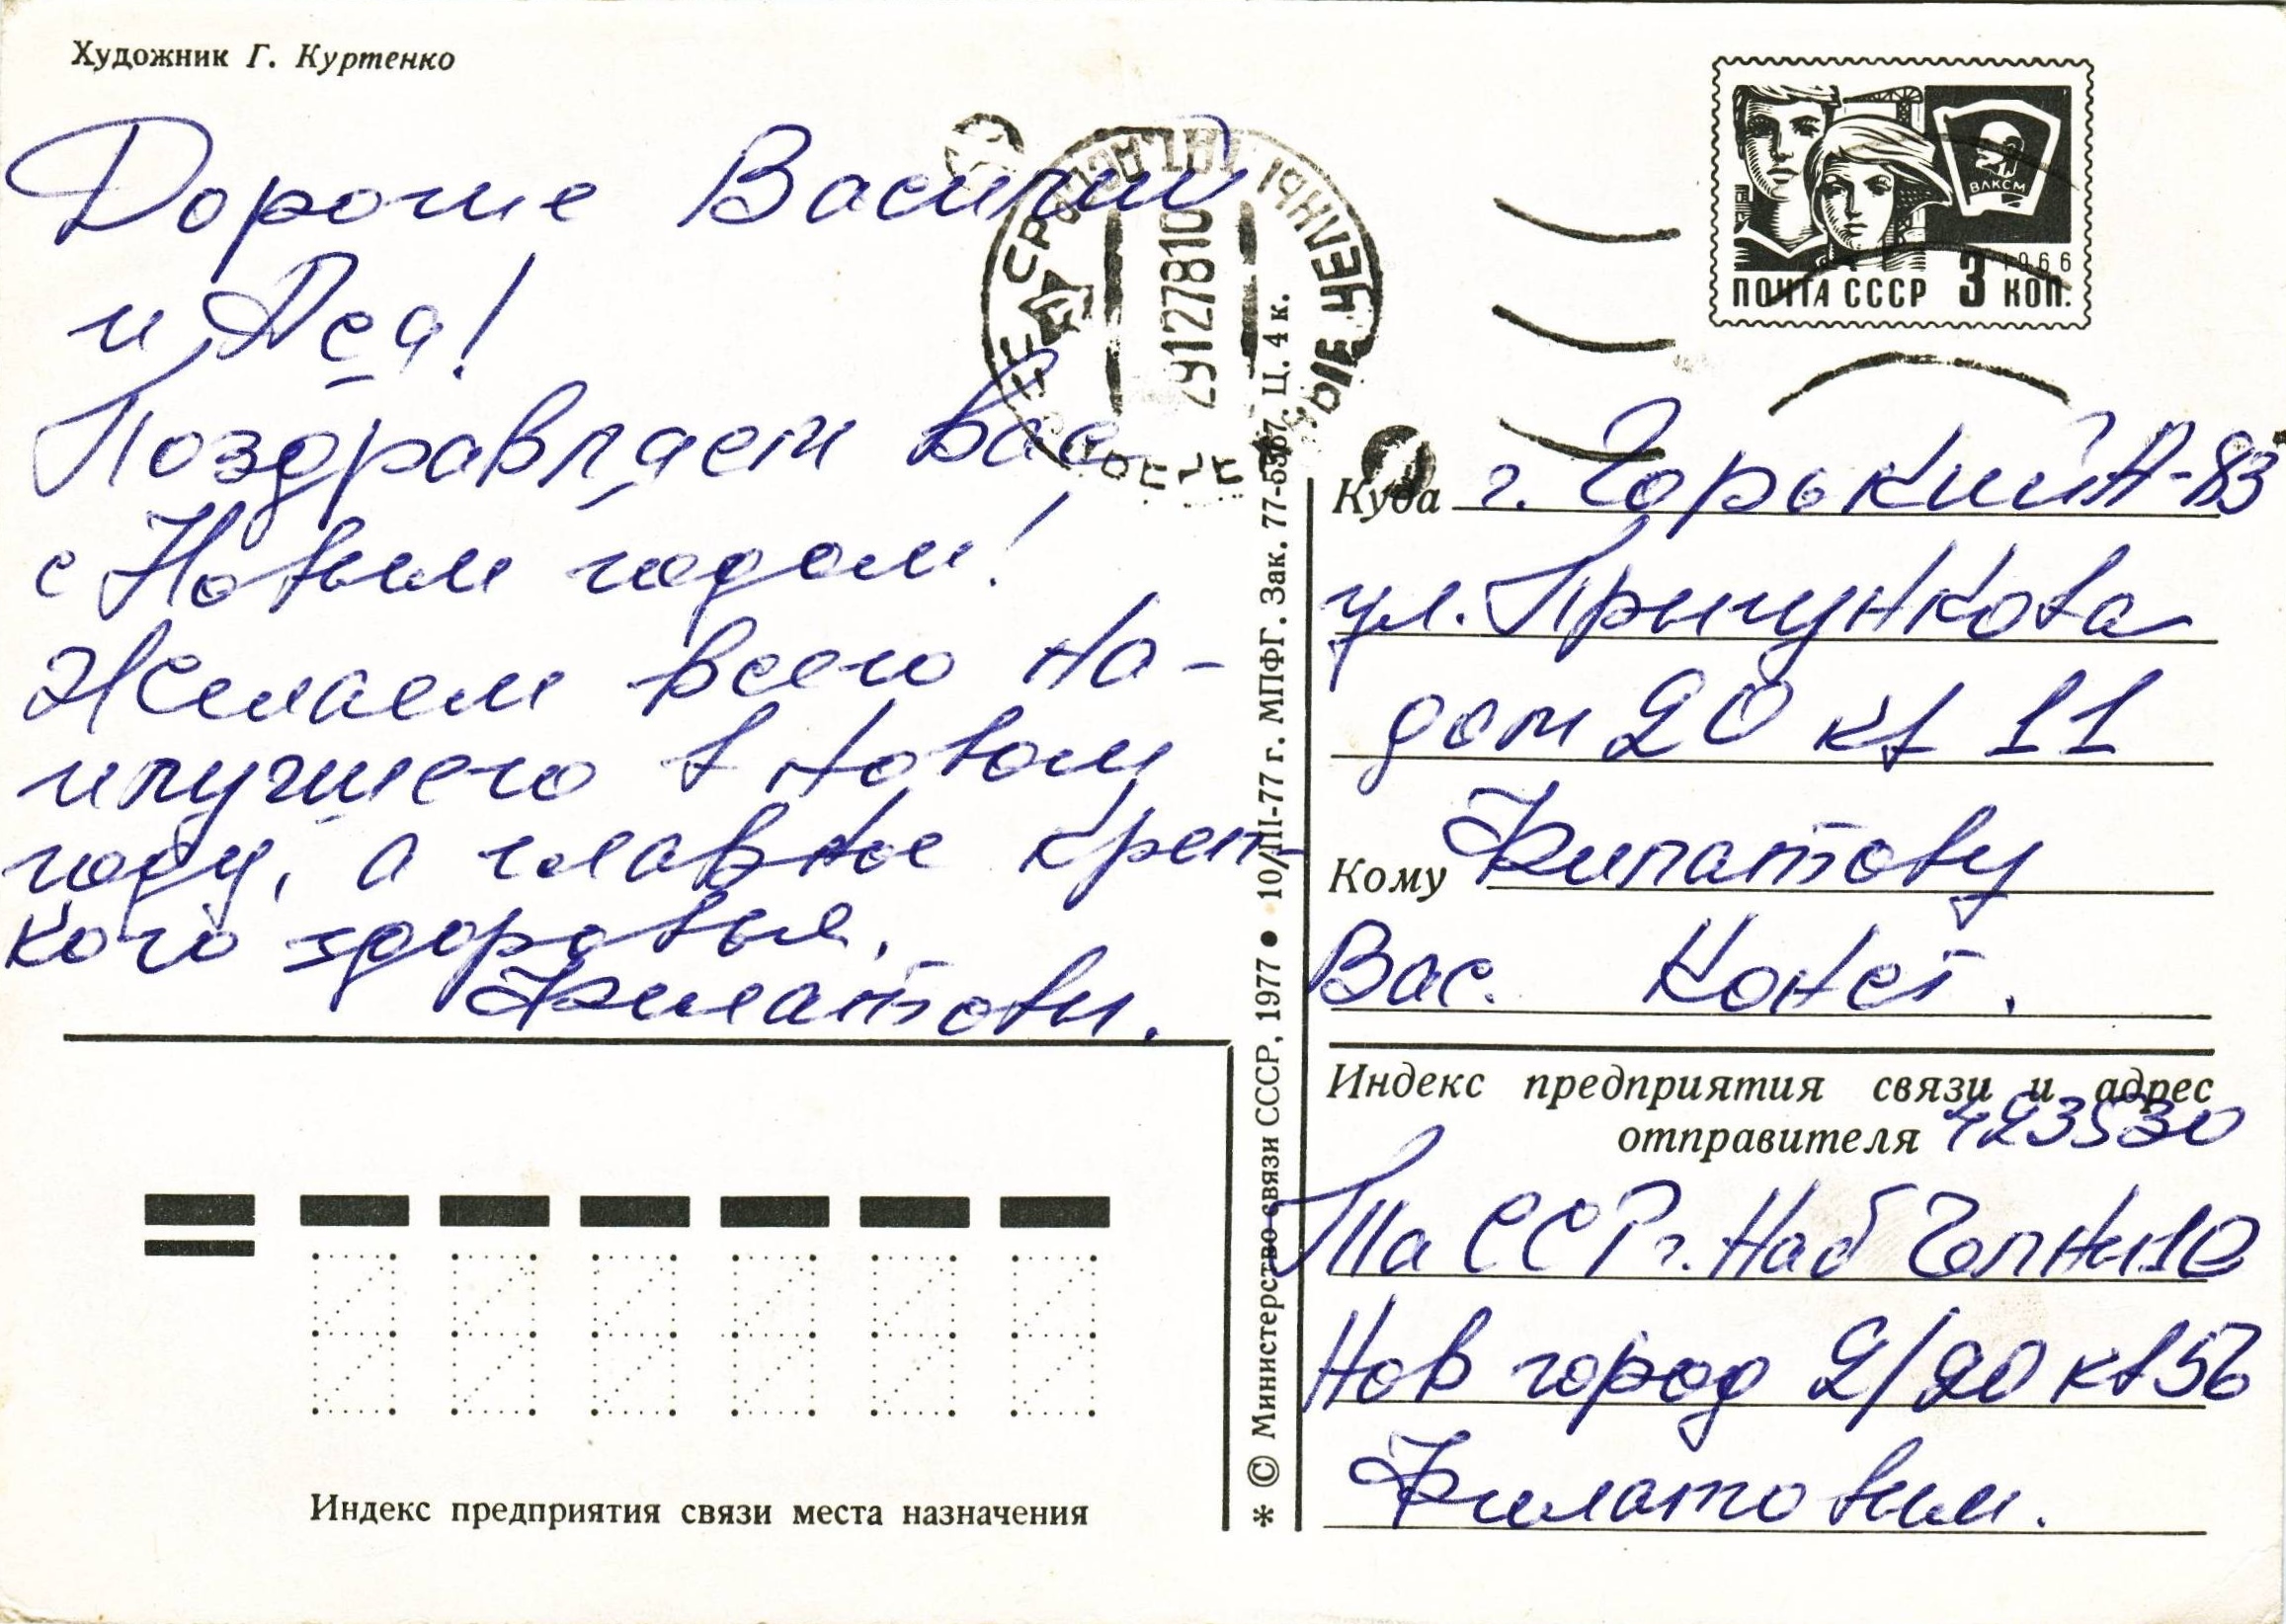 Художник Г. Куртенко
Дорогие Василий
и Ася!
Поздравляем вас
с Новым годом!
Желаем всего на-
илучшего в новом
году, а главное креп-
кого здоровья.
Филатовы.
29127810
ВЛКСМ
1966
ПОЧТА СССР 3 КОП.
Куда г. Горький А-83
ул. Прыгункова
дом 20 кв 11
Кому Филатову
Вас. Конст.
Индекс предприятия связи и адрес
отправителя 423530
ТаССР г. Наб Челны 10
Нов город 2/20 кв 56
Филатовым.
Индекс предприятия связи места назначения
* © Министерство связи СССР, 1977 • 10/III-77 г. МПФГ. Зак. 77-5367. Ц. 4 к.